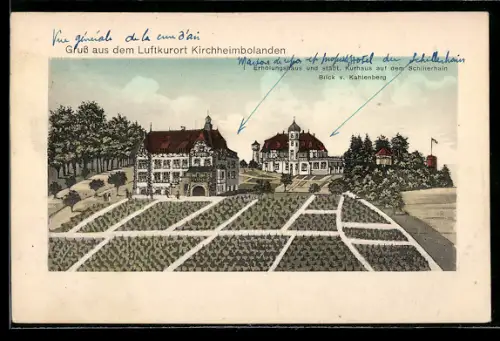 Vue générale de la cure d'air
Gruß aus dem Luftkurort Kirchheimbolanden
Maison de repos et propre Hotel du Schillerhain
Erholungshaus und städt. Kurhaus auf dem Schillerhain
Blick v. Kahlenberg